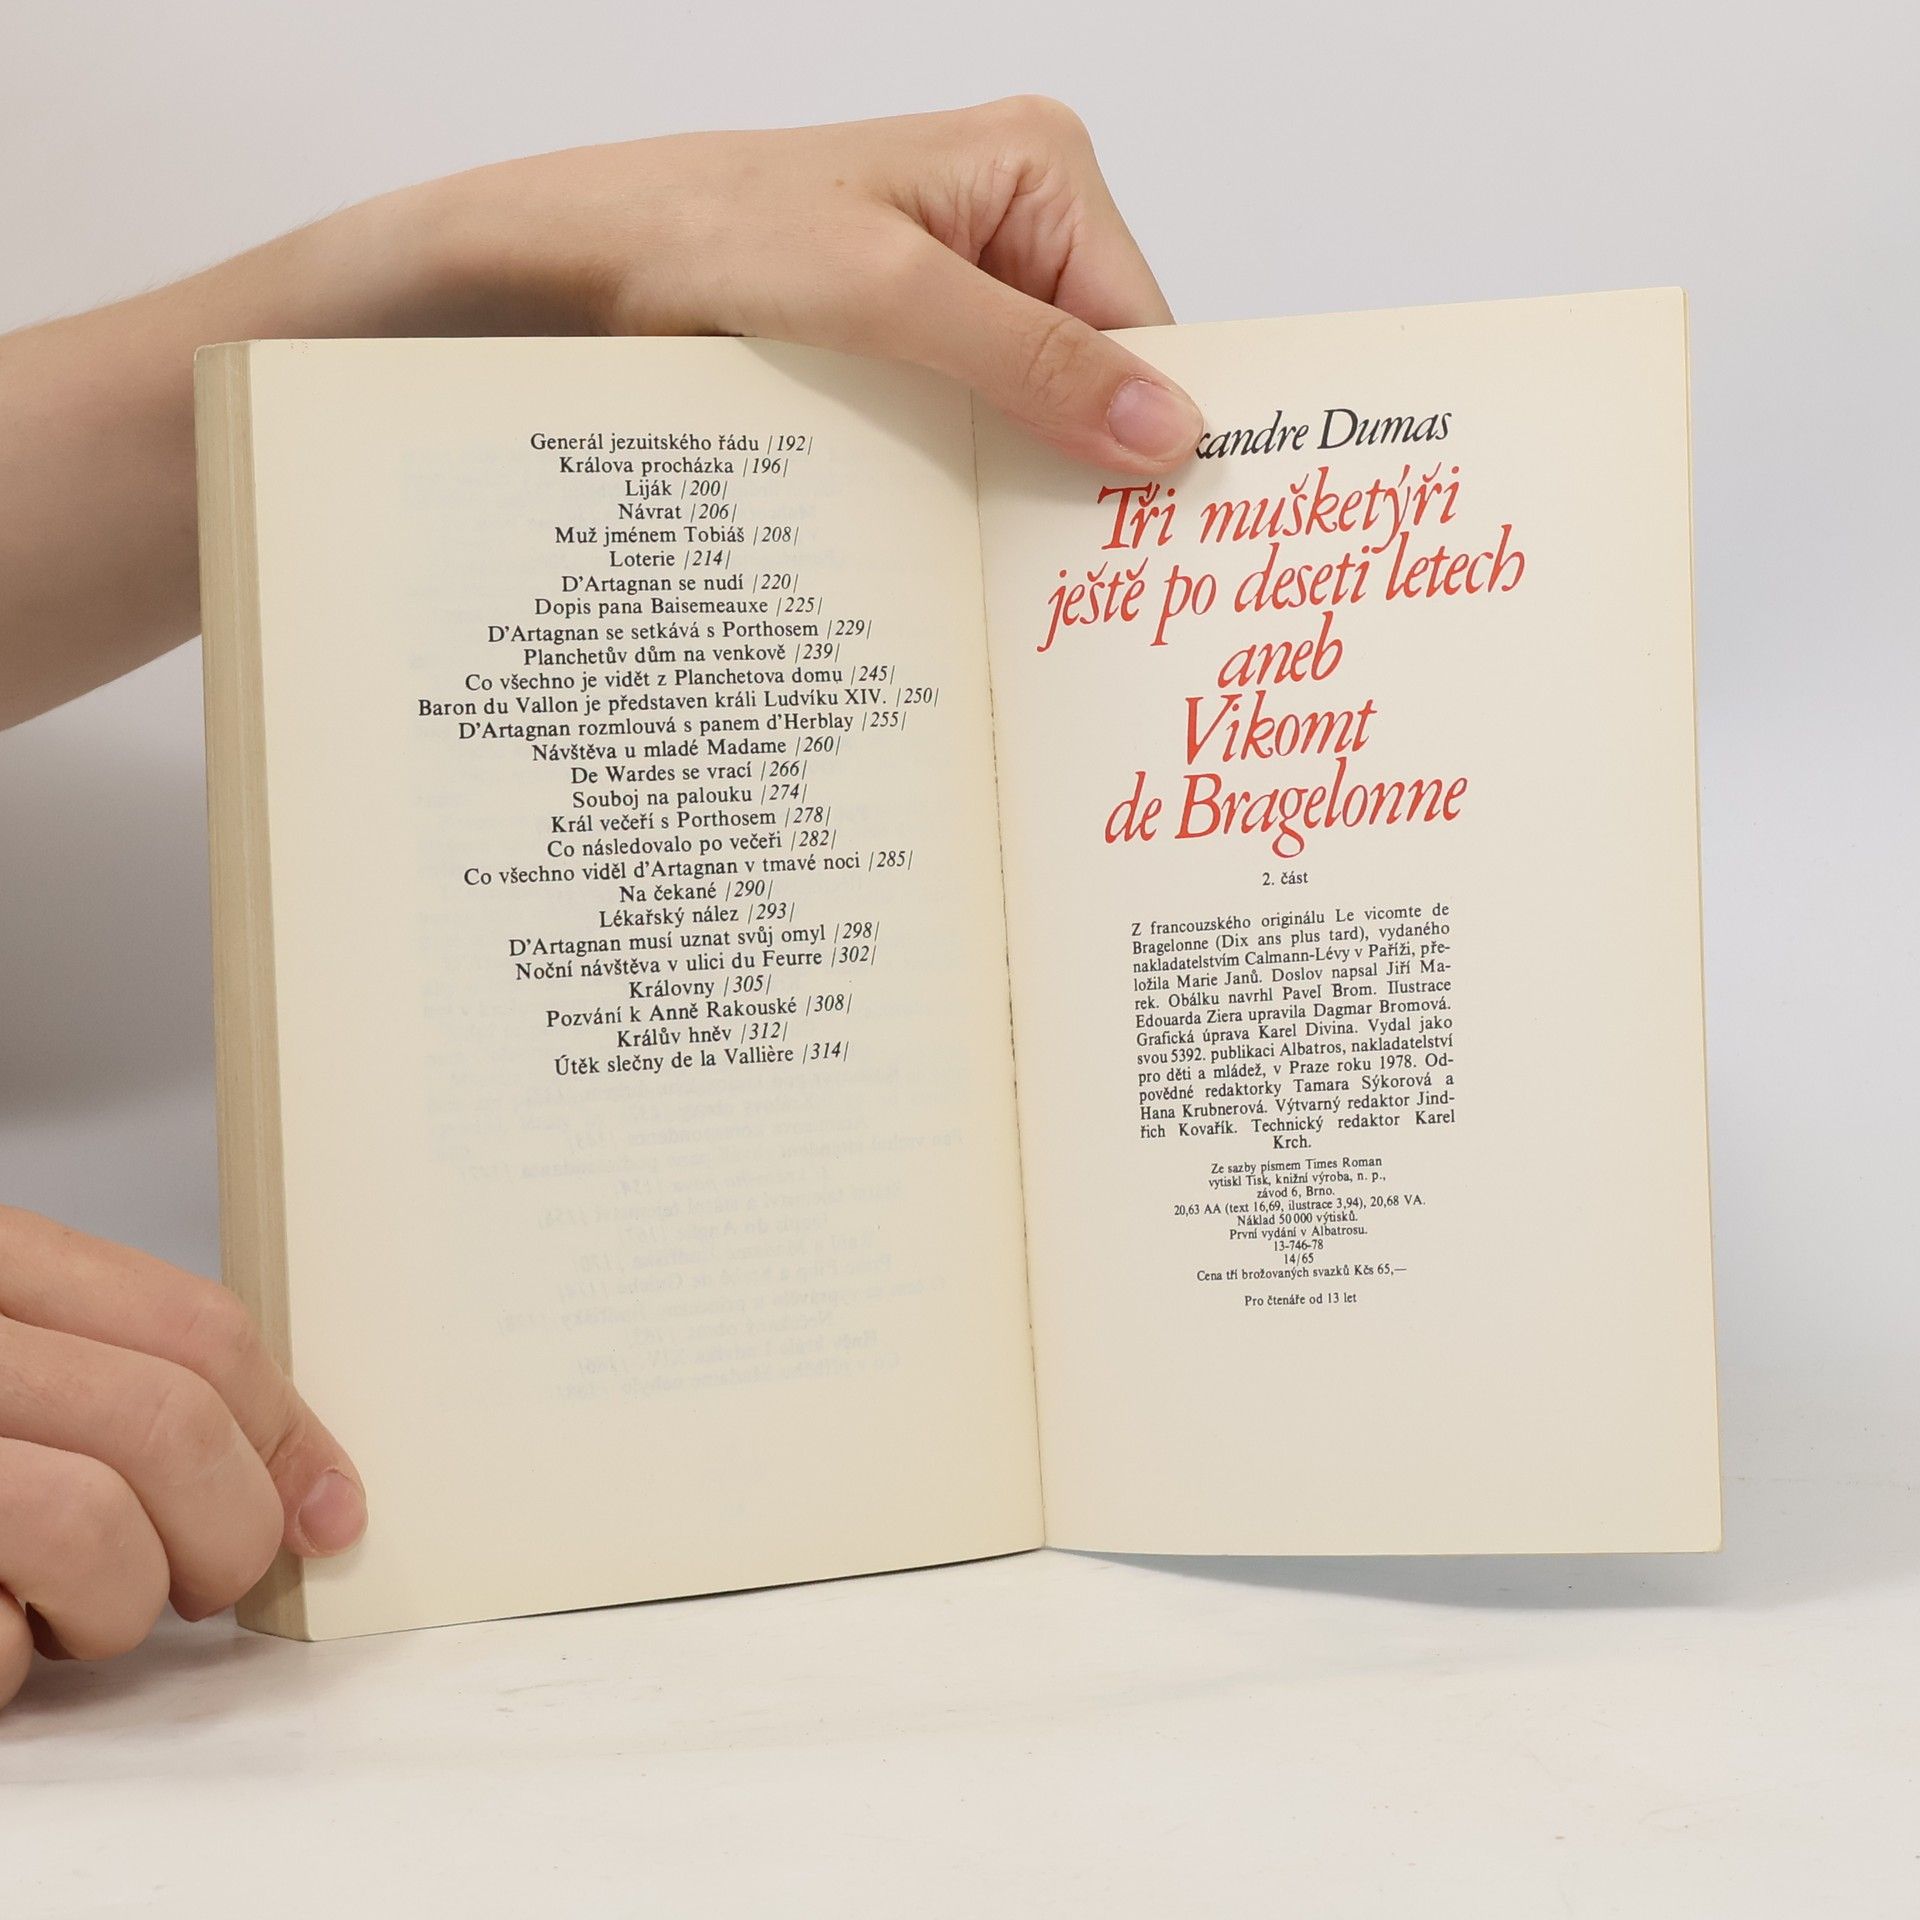 Generál jezuitského řádu /192/
Králova procházka /196/
Liják /200/
Návrat /206/
Muž jménem Tobiáš /208/
Loterie /214/
D'Artagnan se nudí /220/
Dopis pana Baisemeauxe /225/
D'Artagnan se setkává s Porthosem /229/
Planchetův dům na venkově /239/
Co všechno je vidět z Planchetova domu /245/
Baron du Vallon je představen králi Ludvíku XIV. /250/
D'Artagnan rozmlouvá s panem d'Herblay /255/
Návštěva u mladé Madame /260/
De Wardes se vrací /266/
Souboj na palouku /274/
Král večeří s Porthosem /278/
Co následovalo po večeři /282/
Co všechno viděl d'Artagnan v tmavé noci /285/
Na čekané /290/
Lékařský nález /293/
D'Artagnan musí uznat svůj omyl /298/
Noční návštěva v ulici du Feurre /302/
Královny /305/
Pozvání k Anně Rakouské /308/
Králův hněv /312/
Útěk slečny de la Vallière /314/
xandre Dumas
Tři mušketýři
ještě po deseti letech
aneb
Vikomt
de Bragelonne
2. část
Z francouzského originálu Le vicomte de
Bragelonne (Dix ans plus tard), vydaného
nakladatelstvím Calmann-Lévy v Paříži, pře-
ložila Marie Janů. Doslov napsal Jiří Ma-
rek. Obálku navrhl Pavel Brom. Ilustrace
Edouarda Ziera upravila Dagmar Bromová.
Grafická úprava Karel Divina. Vydal jako
svou 5392. publikaci Albatros, nakladatelství
pro děti a mládež, v Praze roku 1978. Od-
povědné redaktorky Tamara Sýkorová a
Hana Krubnerová. Výtvarný redaktor Jind-
řich Kovařík. Technický redaktor Karel
Krch.
Ze sazby písmem Times Roman
vytiskl Tisk, knižní výroba, n. p.,
závod 6, Brno.
20,63 AA (text 16,69, ilustrace 3,94), 20,68 VA.
Náklad 50 000 výtisků.
První vydání v Albatrosu.
13-746-78
14/65
Cena tří brožovaných svazků Kčs 65,—
Pro čtenáře od 13 let